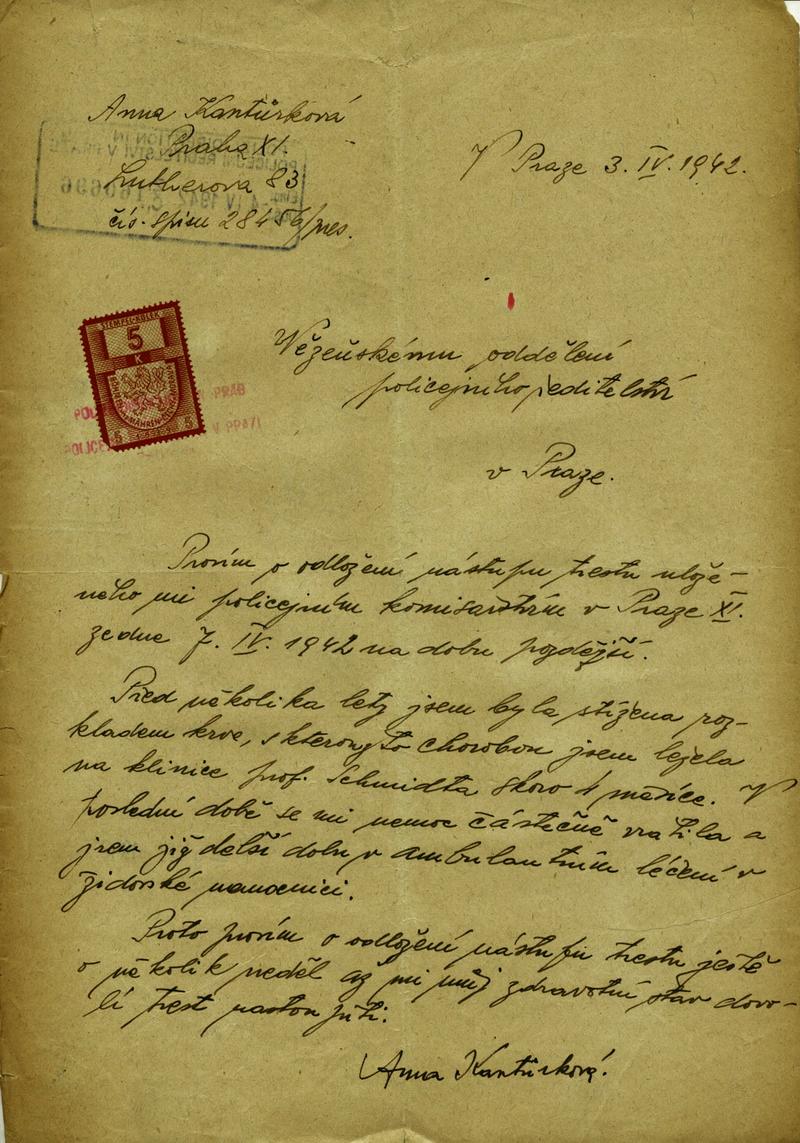 Anna Kantůrková
Praha XI.
Lutherova 83
čís. spisu 28456/pres.
V Praze 3. IV. 1942.
STEMPEL-KOLEK
5
K
5 5
Vězeňskému oddělení
policejního ředitelství
v Praze.
Prosím o odložení nástupu trestu ulože-
ného mi policejním komisařstvím v Praze XI.
ze dne 7. IV. 1942 na dobu pozdější.
Před několika lety jsem byla stížena roz-
kladem krve, s kteroužto chorobou jsem ležela
na klinice prof. Schmidta skoro 4 měsíce. V
poslední době se mi nemoc částečně vrátila a
jsem již delší dobu v ambulantním léčení v
židovské nemocnici.
Proto prosím o odložení nástupu trestu ještě
o několik neděl až mi můj zdravotní stav dovo-
lí trest nastoupiti.
Anna Kantůrková.